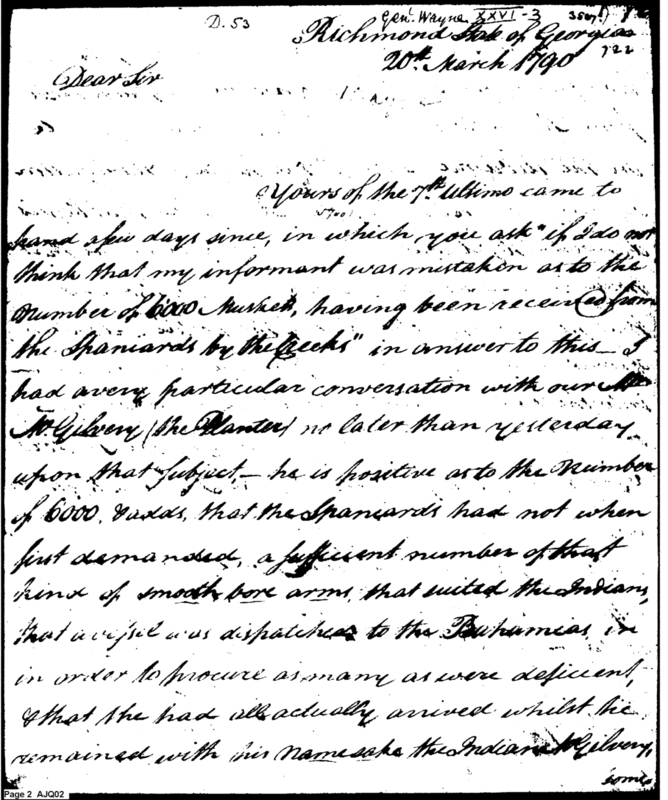 D. 53 Genl. Wayne XXVI-3
Richmond State of Georgia
20th. March 1790 722
Dear Sir
Yours of the 7th. Ultimo came to
hand a few days since, in which, you ask "if I do not
think that my informant was mistaken as to the
number of 6000 Muskets, having been received from
the Spaniards by the Creeks" in answer to this— I
had a very particular conversation with our Mr.
McGilvery (the Planter) no later than yesterday
upon that subject,— he is positive as to the Number
of 6000. & adds, that the Spaniards had not when
first demanded, a sufficient number of that
kind of smooth bore arms, that suited the Indians,
that a vessel was dispatched to the Bahamias in
in order to procure as many as were deficient,
& that she had actually arrived whilst he
remained with his Namesake the Indian McGilvery,
some
Page 2 AJQ02